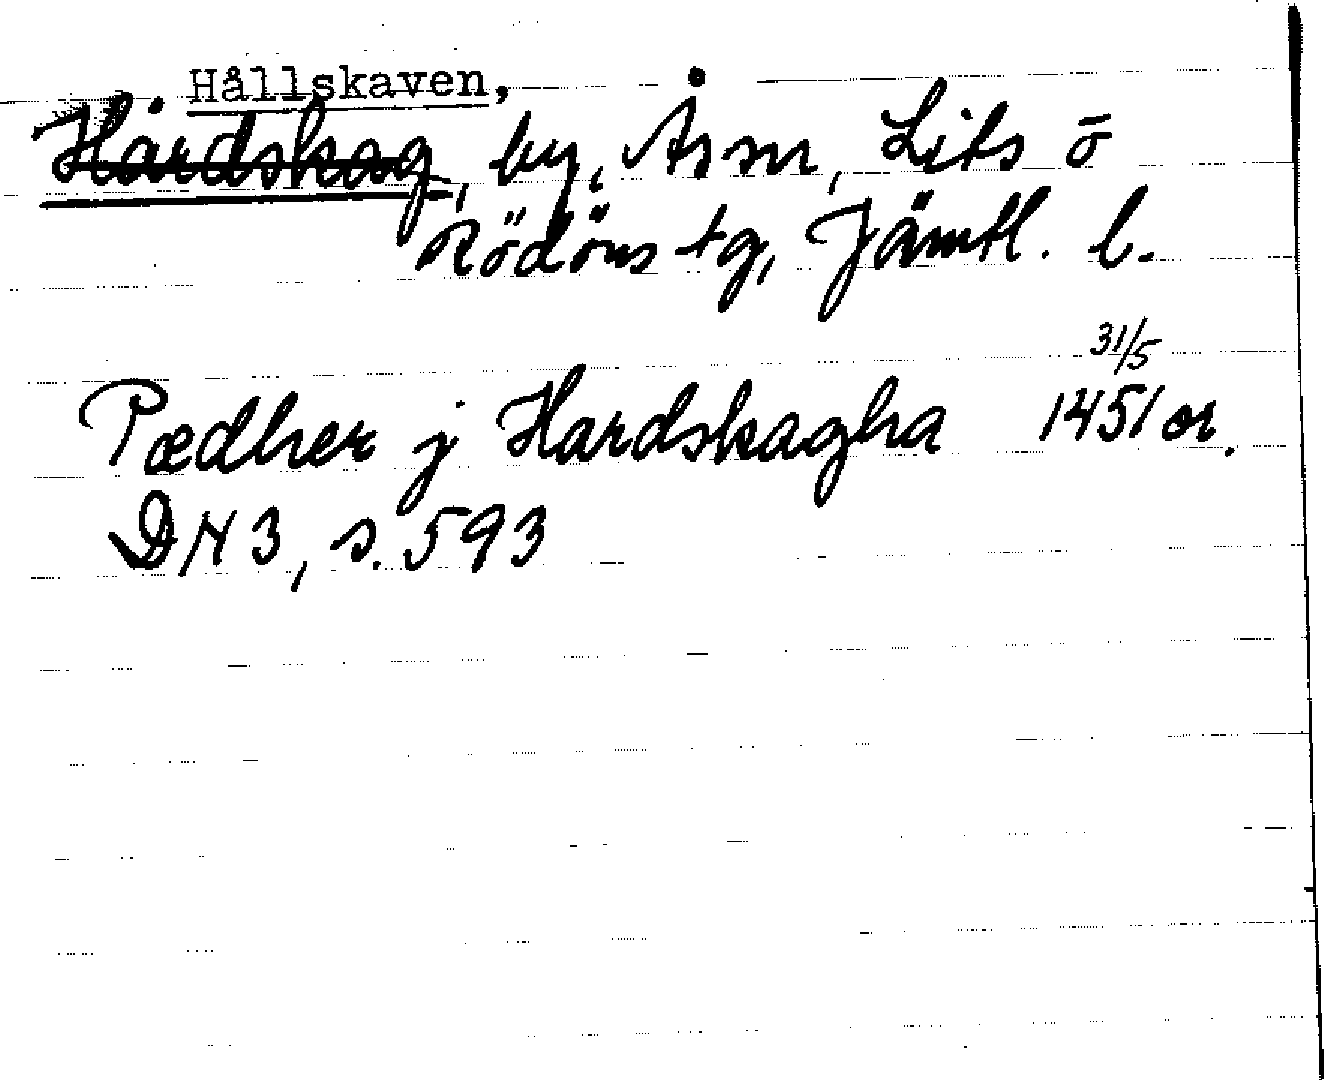 Hållskaven,
Hårdskog, by, Ås sn, Lits o
Rödöns tg, Jämtl. l.
31/5
Pædher j Hardskagha 1451 or.
DN 3, s. 593